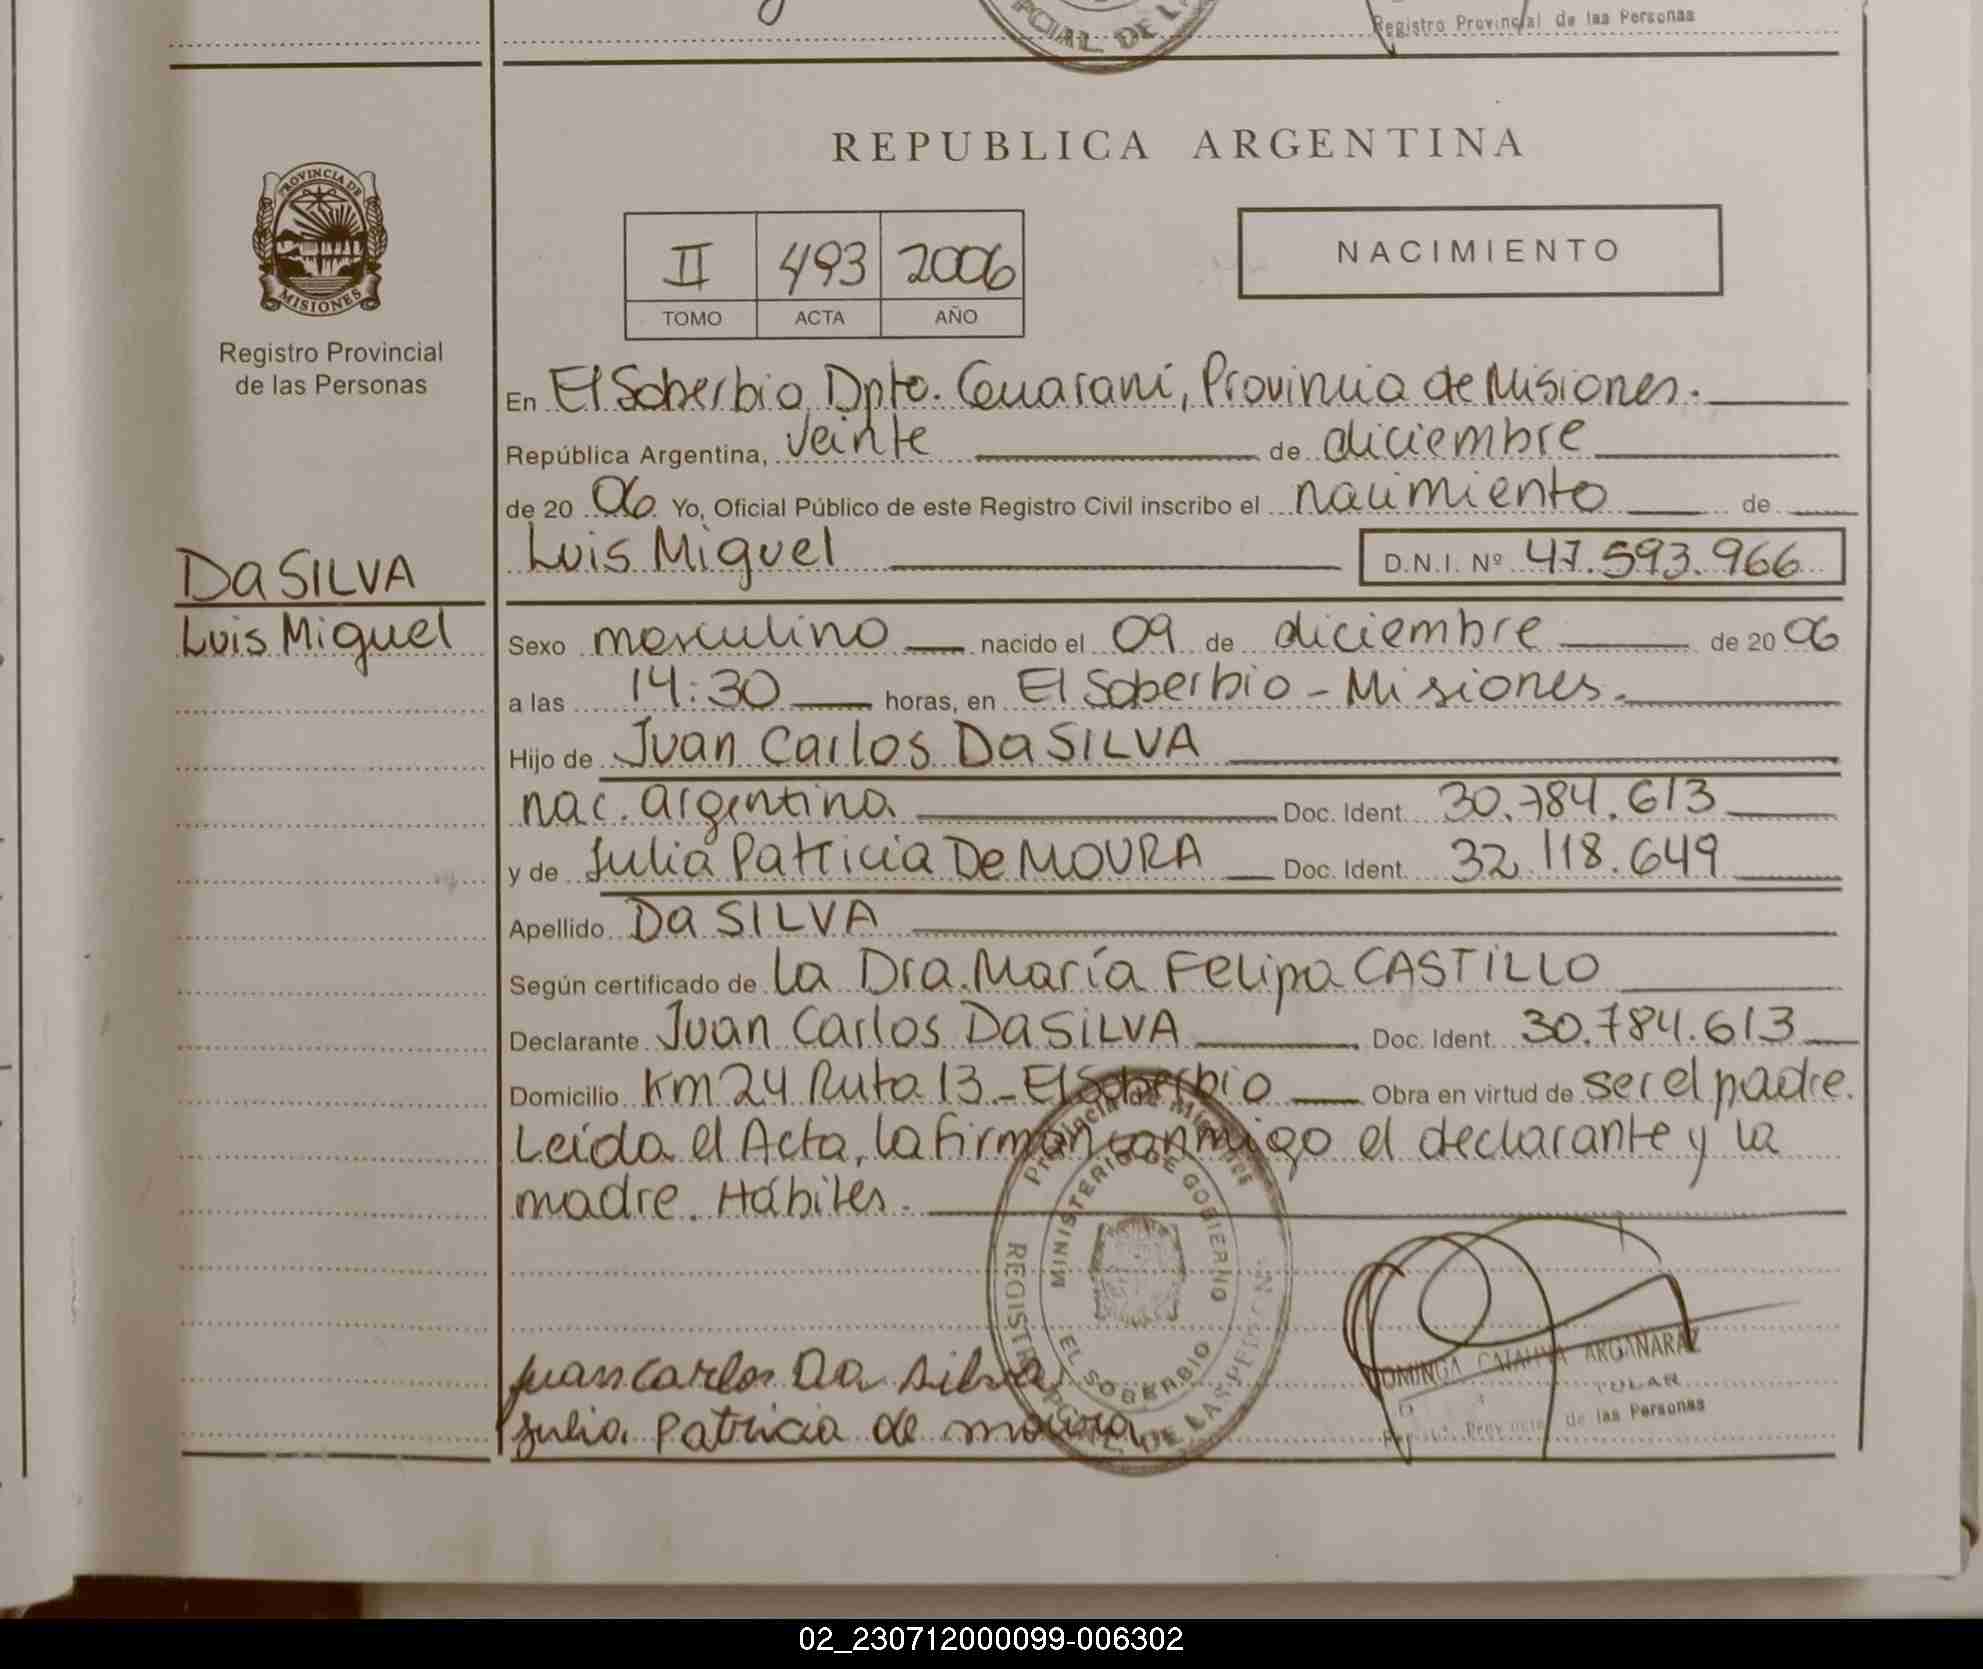 PCIAL DE LA
Registro Provincial de las Personas
REPUBLICA ARGENTINA
PROVINCIA DE
MISIONES
Registro Provincial
de las Personas
II 493 2006
TOMO ACTA AÑO
NACIMIENTO
En El Soberbio, Dpto. Guaraní, Provincia de Misiones.
República Argentina, veinte de diciembre
de 20 06 Yo, Oficial Público de este Registro Civil inscribo el nacimiento de
Luis Miguel D.N.I. Nº 47.593.966
Da SILVA
Luis Miguel
Sexo masculino nacido el 09 de diciembre de 20 06
a las 14:30 horas, en El Soberbio - Misiones.
Hijo de Juan Carlos Da SILVA
nac. argentina Doc. Ident. 30.784.613
y de Julia Patricia De MOURA Doc. Ident. 32.118.649
Apellido Da SILVA
Según certificado de la Dra. María Felipa CASTILLO
Declarante Juan Carlos Da SILVA Doc. Ident. 30.784.613
Domicilio Km 24 Ruta 13 - El Soberbio Obra en virtud de ser el padre.
Leída el Acta, la firman conmigo el declarante y la
madre. Hábiles.
Provincia de Misiones
MINISTERIO DE GOBIERNO
EL SOBERBIO
Juan Carlos Da Silva
Julia Patricia de moura
DOMINGA ARGAÑARAZ
de las Personas
02_230712000099-006302